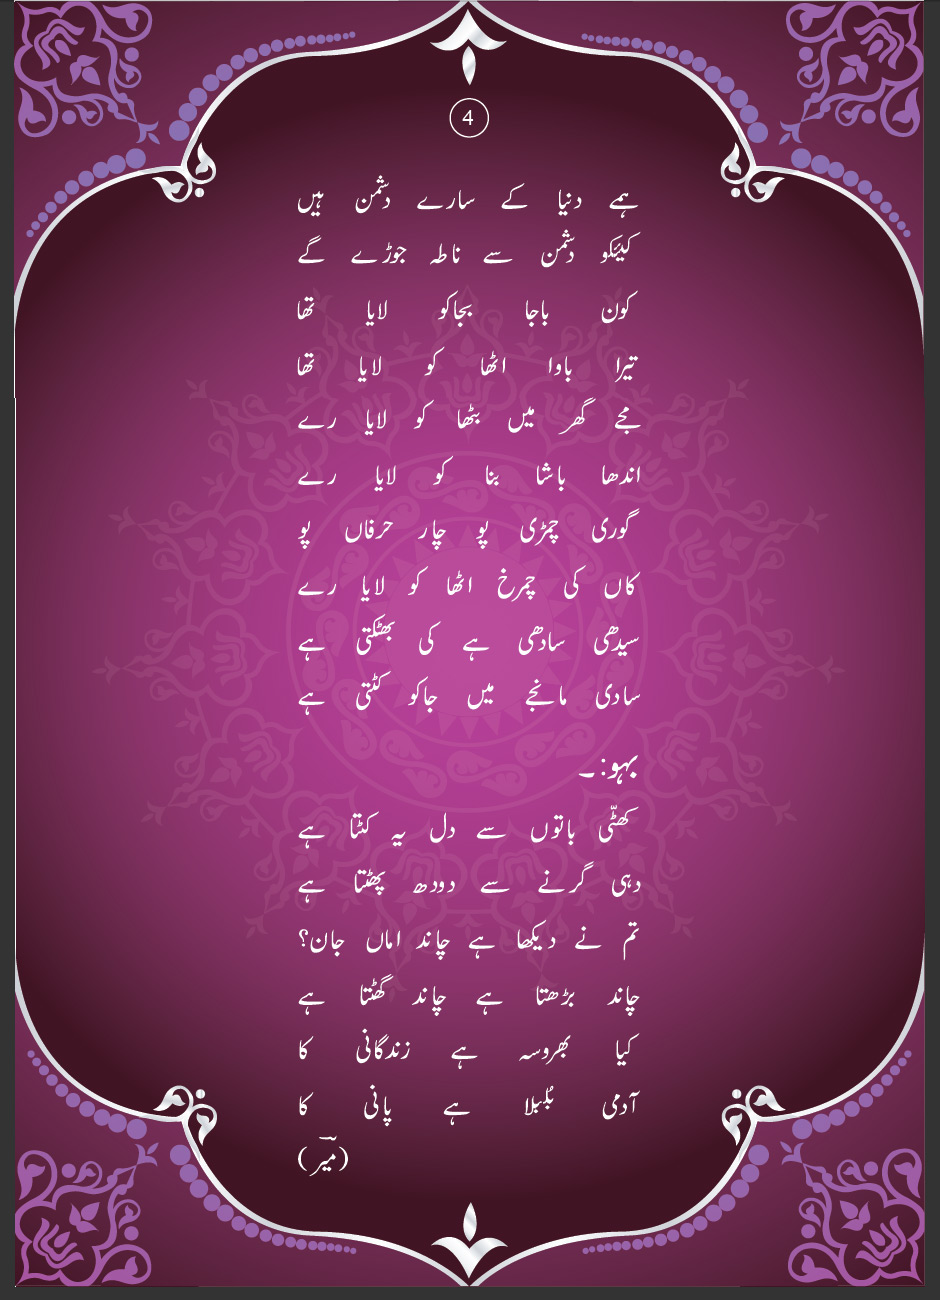 4
ہے دنیا کے سارے دشمن ہیں
کیئکو دشمن سے ناطہ جوڑے گے
کون باجا بجاکو لایا تھا
تیرا باوا اٹھا کو لایا تھا
مجے گھر میں بٹھا کو لایا رے
اندھا باشا بنا کو لایا رے
گوری چمڑی پو چار حرفاں پو
کاں کی چمرخ اٹھا کو لایا رے
سیدھی سادھی ہے کی بھٹکتی ہے
سادی مانجے میں جاکو کٹتی ہے
بہو:۔
کھٹّی باتوں سے دل یہ کٹتا ہے
دہی گرنے سے دودھ پھٹتا ہے
تم نے دیکھا ہے چاند اماں جان؟
چاند بڑھتا ہے چاند گھٹتا ہے
کیا بھروسہ ہے زندگانی کا
آدمی بُلبلا ہے پانی کا
(میرؔ)